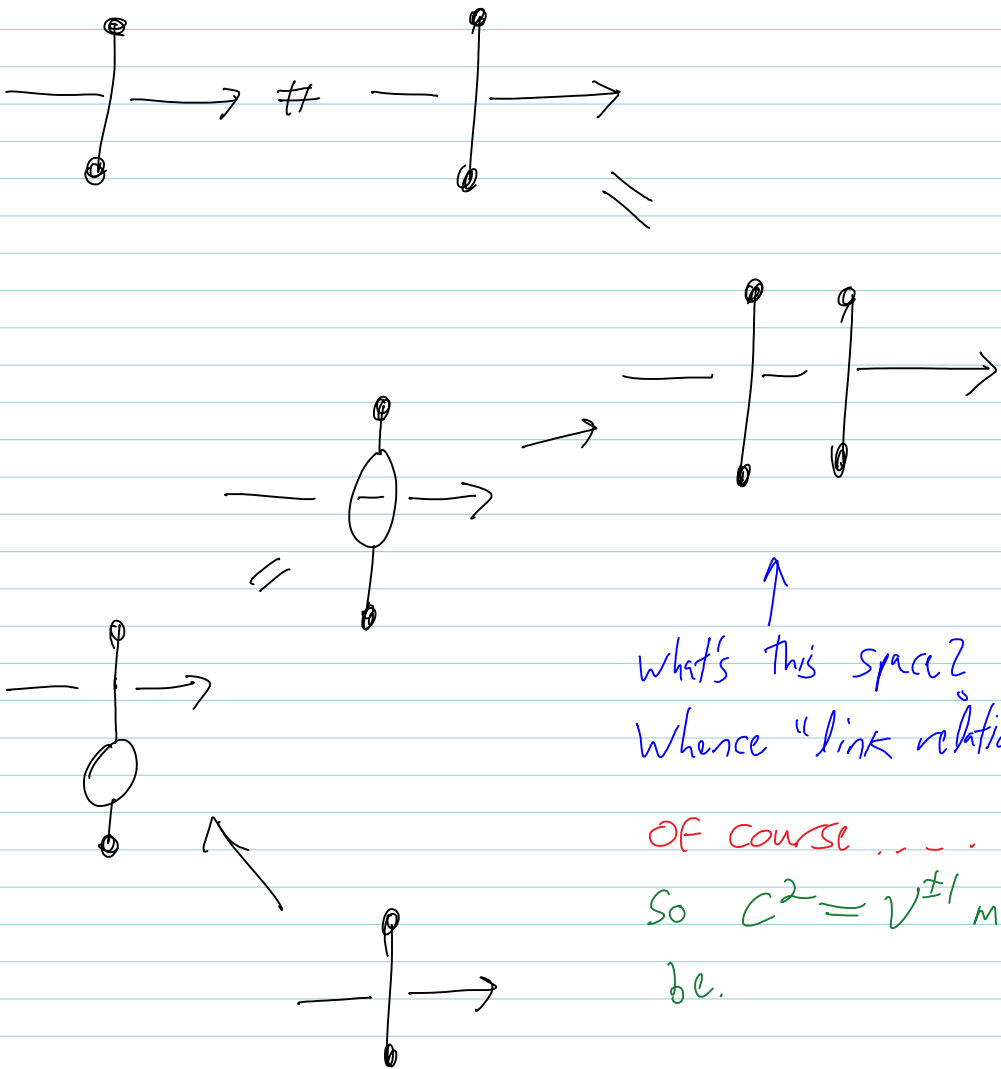 #
=
=
What's this space?
Whence "link
OF course . . . .
So C² = ν^±1
be.